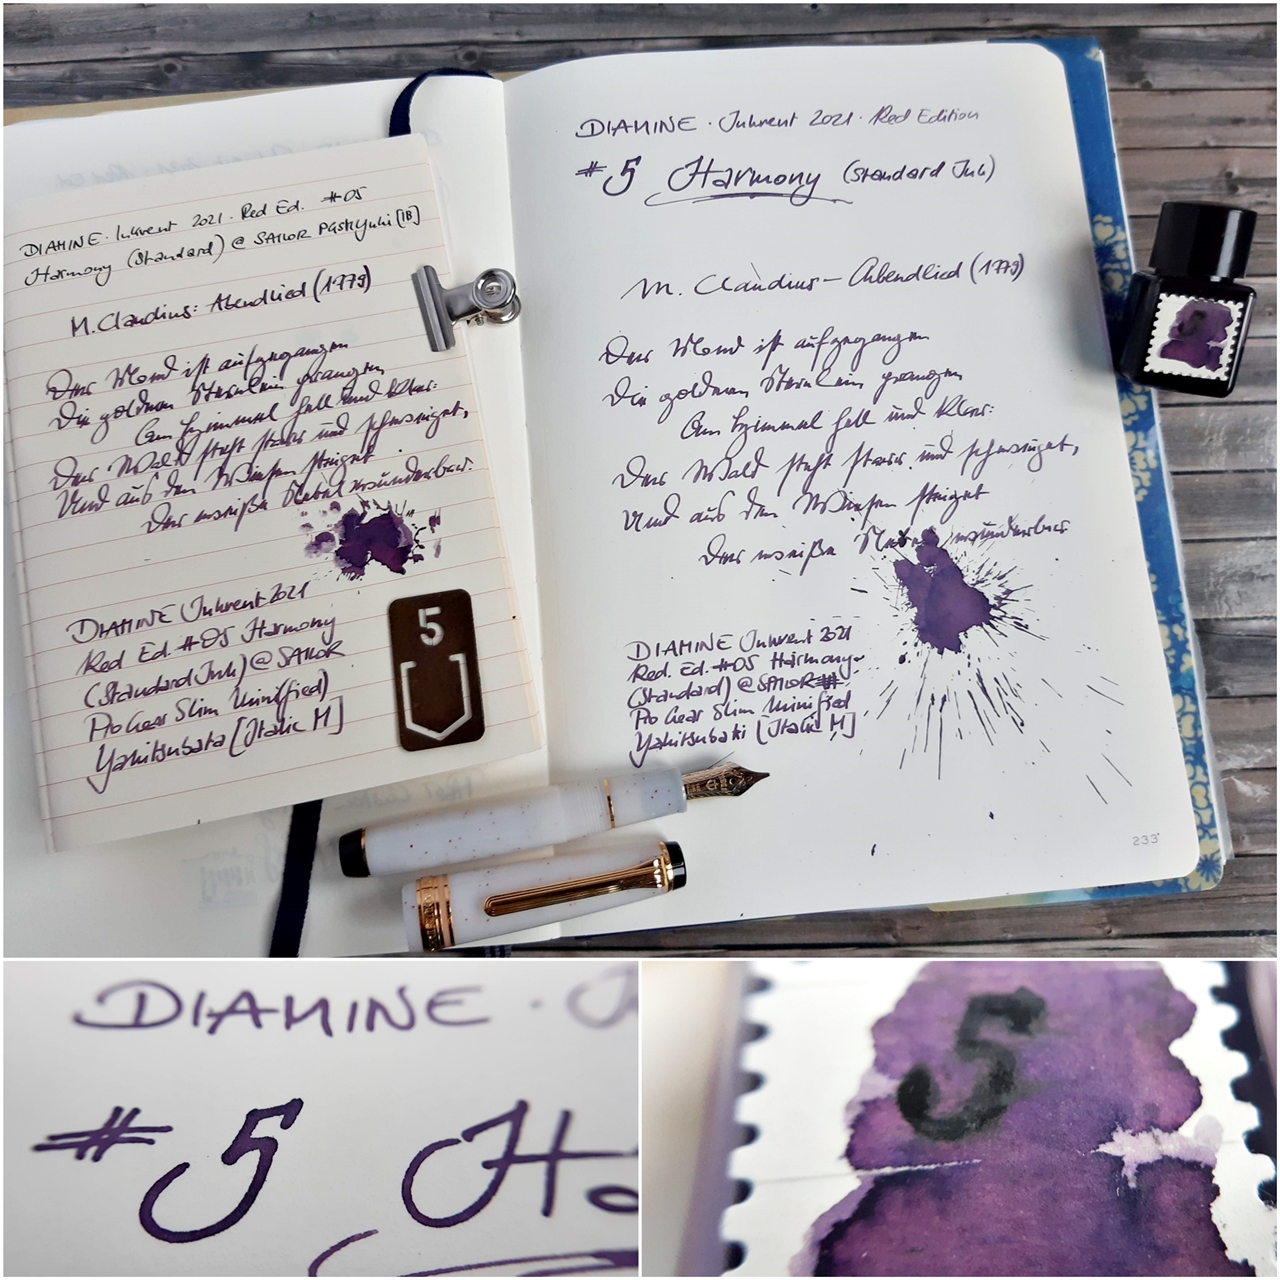 DIAMINE · Inkvent 2021 · Red Ed. #05
Harmony (Standard) @ SAILOR Pgs Kyuhi [1B]
M. Claudius: Abendlied (1779)
Der Mond ist aufgegangen
Die goldnen Sternlein prangen
Am Himmel hell und klar:
Der Wald steht starr und schweiget,
Und aus den Wiesen steiget
Der weiße Nebel wunderbar.
DIAMINE Inkvent 2021
Red Ed. #05 Harmony
(Standard Ink) @ SAILOR
Pro Gear Slim Mini(fied)
Yakitsubata [Italic M]
5
DIAMINE · Inkvent 2021 · Red Edition
#5 Harmony (Standard Ink)
M. Claudius – Abendlied (1779)
Der Mond ist aufgegangen
Die goldnen Sternlein prangen
Am Himmel hell und klar:
Der Wald steht starr und schweiget,
Und aus den Wiesen steiget
Der weiße Nebel wunderbar
DIAMINE Inkvent 2021
Red. Ed. #05 Harmony
(Standard) @ SAILOR
Pro Gear Slim Minified
Yakitsubaki [Italic M]
233
5
DIAMINE ·
#5 Ha
5